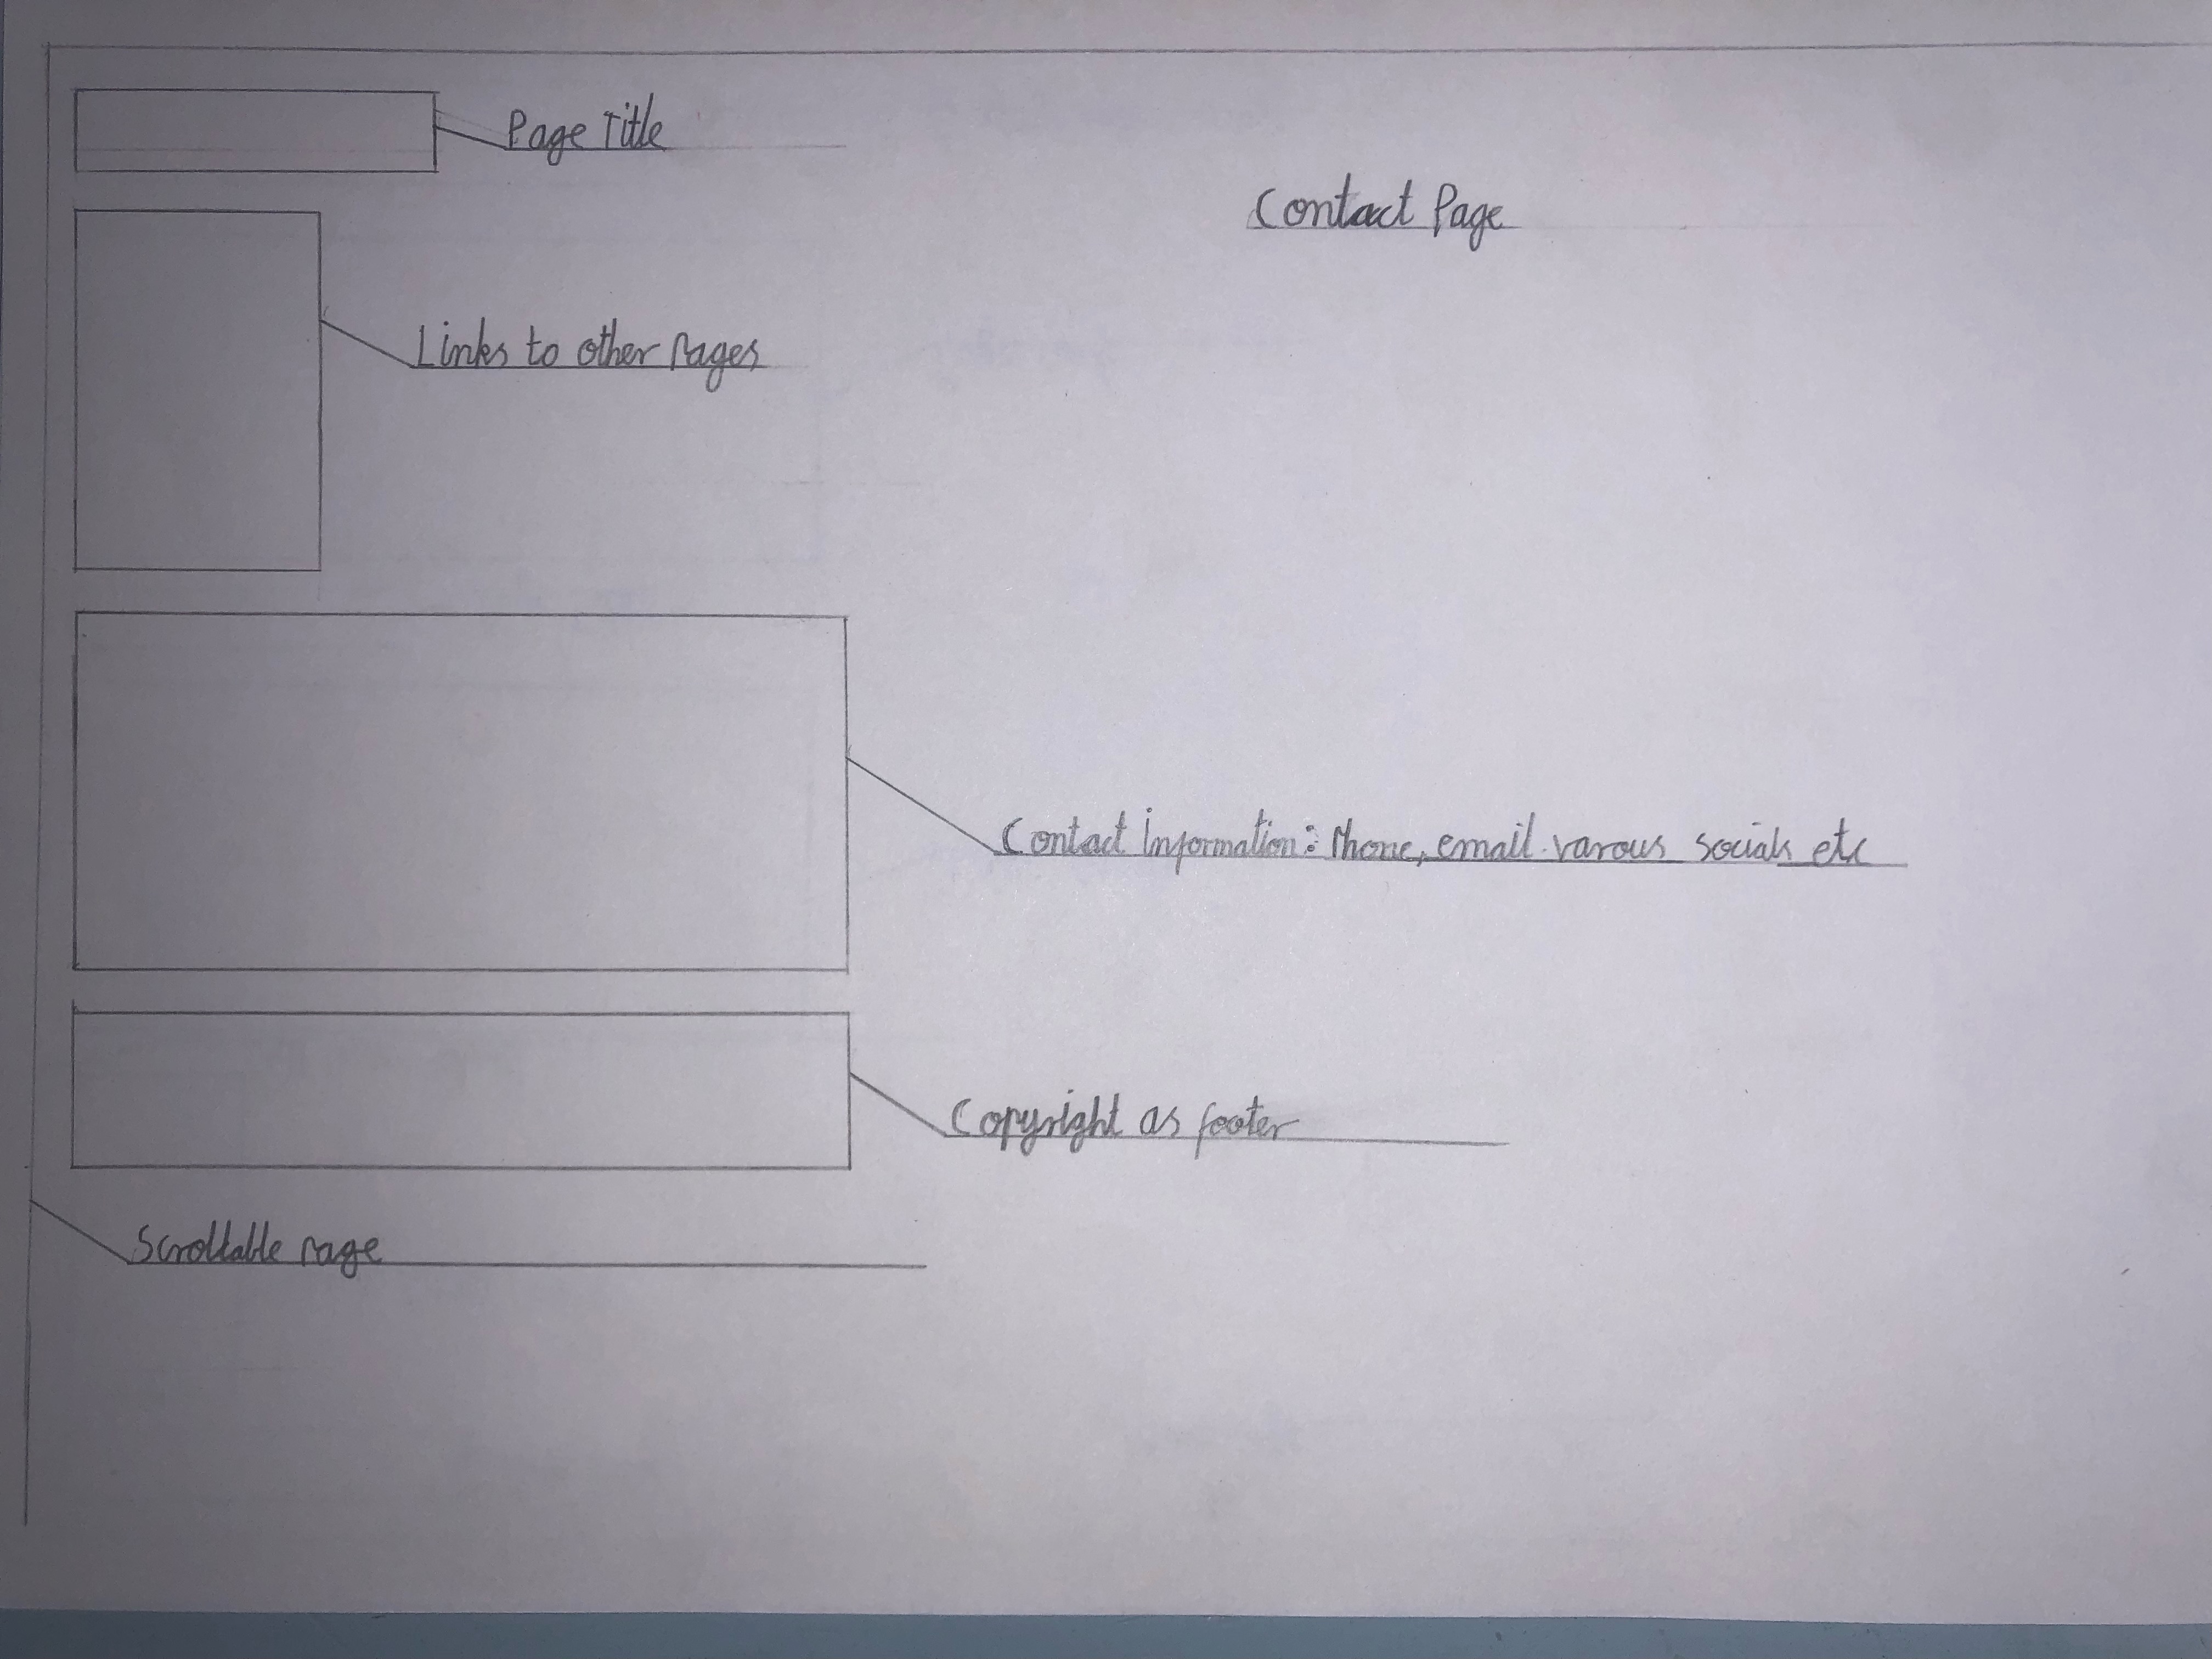 Page Title
Contact Page
Links to other pages
Contact information: Phone, email. varous socials etc
Copyright as footer
Scrollable page